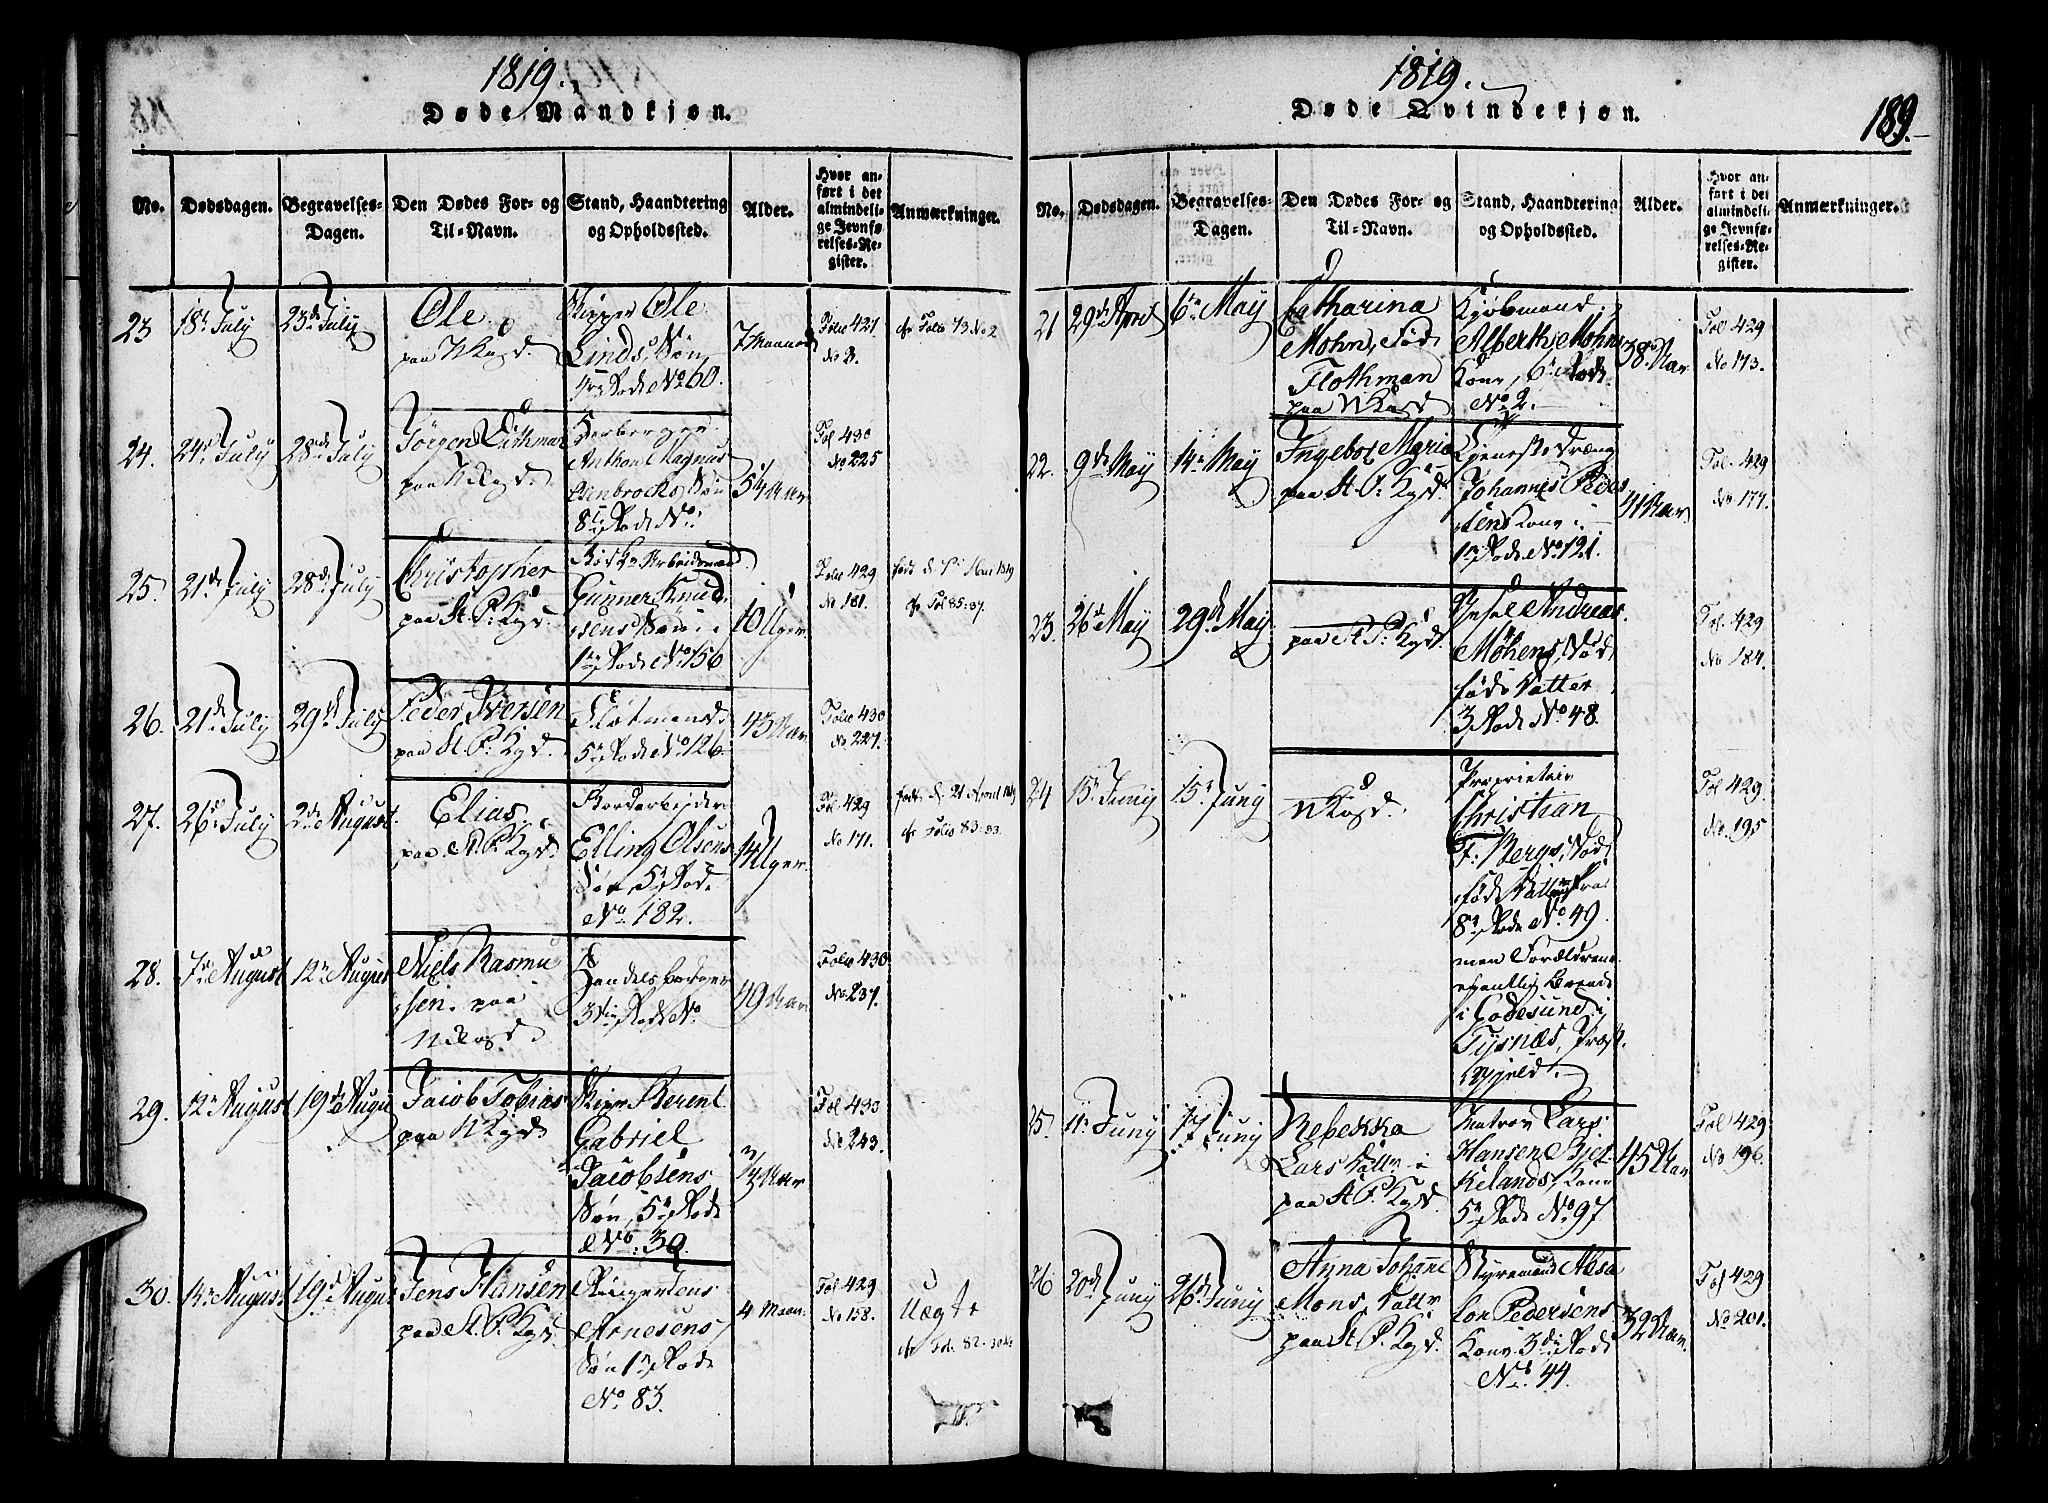 1819.
Døde Mandkjøn.
No.
Dødsdagen.
Begravelses-
Dagen.
Den Dødes For- og
Til-Navn.
Stand, Haandtering
og Opholdssted.
Alder.
Hvor an-
ført i det
almindeli-
ge Jevnfø-
relses-Re-
gister.
Anmærkninger.
23
18de July
23de July
Ole
paa N Kgd.
Skipper Ole
Linds Søn
No 60.
7 Maaned
Folio 421
No 8.
cfr Folio 73 No 2
24.
24de July
28de July
Jørgen
paa N Kgd.
Anthon Magnus
Søn
8de Rode No
Fol 430
No 225
25
21de July
28de July
Christopher
paa St. P. Kgd.
Gunner Knud-
sens Søn i
1ste Rode No 156
10 Uger
Folio 429
No 181.
cfr Fol 85: 37.
26.
21de July
29de July
Peder Iversen
paa St. P. Kgd.
5te Rode No 126
45 Aar
Folio 430
No 227.
27.
26de July
2de August.
Elias
paa St. P. Kgd.
Elling Olsens
Søn, 5te Rode
No 182.
14 Uger
Fol 429
No 171.
født d. 21 April 1819
cfr Folio 83: 33.
28.
7de August
12te August
Niels Rasmu-
sen paa
N Kgd.
Handelsborger
3die Rode No
49 Aar
Folio 430
No 237.
29.
12te August
19de Augu
Jacob Tobias
paa N Kgd.
Skipper Berent
Gabriel
Jacobsens
Søn, 5te Rode
No: 30.
Fol 430
No 243.
30.
14de August
19de Augus
Jens Hansen
paa St. P. Kgd.
Arnesens
Søn 1ste Rode
No 83.
4 Maan.
Fol 429
No 158.
Uægte
cfr Fol. 82.
1819.
189.
Døde Qvindekjøn.
No.
Dødsdagen.
Begravelses-
Dagen.
Den Dødes For- og
Til-Navn.
Stand, Haandtering
og Opholdssted.
Alder.
Hvor an-
ført i det
almindeli-
ge Jevnfø-
relses-Re-
gister.
Anmærkninger.
21
29de April
6te May
Catharina
Mohn, fød
Flothman
paa N Kgd.
Kjøbmand
Alberth Mohns
Kone, 6te Rode
No 2.
38 Aar
Fol 429
No 173.
22.
9de May
14de May
Ingebor Maria
paa St. P. Kgd.
Tjenestedræng
Johannes Peder-
sens Kone i
1ste Rode No 121.
41 Aar
Fol. 429
No 177.
23.
26de May
29de May
paa St. P. Kgd.
Andreas
Møhens, død
født Datter
3die Rode No 48.
Fol. 429
No 184.
24
15de Juny
15de Juny
N Kgd.
Proprietair
Christian
F. Bergs, død
født Datter fra
8de Rode No 49.
men Forældrene
egentlig boende
i Godesund i
Tysnæs Præste-
gjeld.
Fol 429.
No 195
25.
11te Juny
17de Juny
Rebekka
Lars Datter
paa St. P. Kgd.
Matros Lars
Hansen Bjel-
kelands, Kone
5te Rode No 97
45 Aar
Fol 429
No 196.
26
20de Juny
26de Juny
Anna Johanne
Mons Datter
paa St. P. Kgd.
Styremand Absa-
lon Pedersens
Kone 3die Rode
No 44.
32 Aar.
Fol 429
No 201.